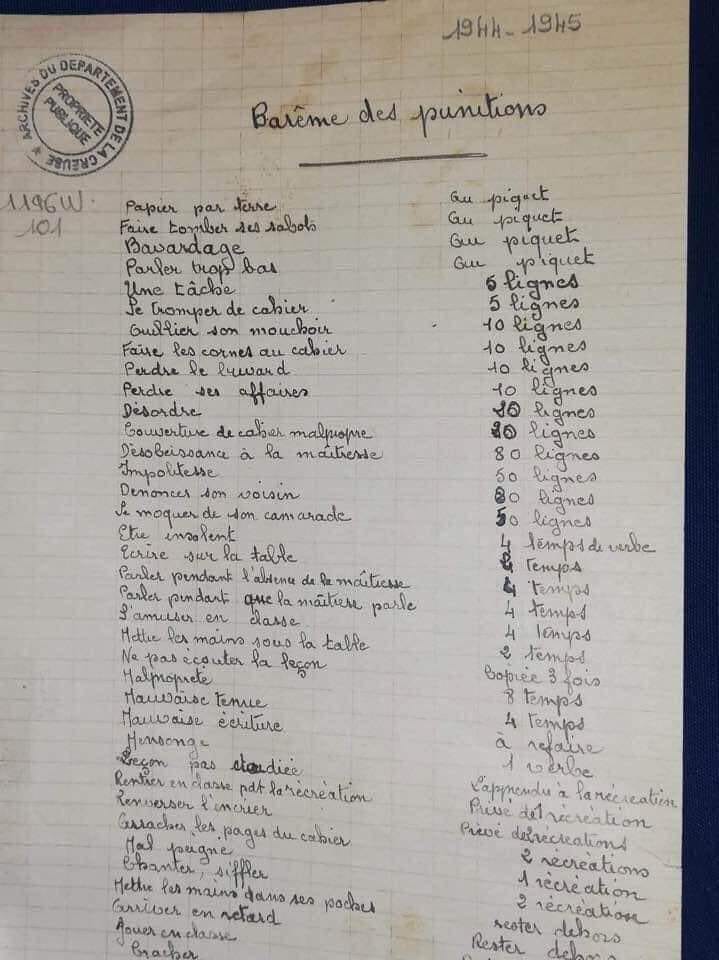 1944-1945
ARCHIVES DU DEPARTEMENT DE LA CREUSE
PROPRIETE PUBLIQUE
Barême des punitions
1196W.
101
Papier par terre Au piquet
Faire tomber ses sabots Au piquet
Bavardage Au piquet
Parler trop bas Au piquet
Une tâche 5 lignes
Se tromper de cahier 5 lignes
Oublier son mouchoir 10 lignes
Faire les cornes au cahier 10 lignes
Perdre le buvard 10 lignes
Perdre ses affaires 10 lignes
Désordre 20 lignes
Couverture de cahier malpropre 20 lignes
Désobeissance à la maîtresse 80 lignes
Impolitesse 50 lignes
Denoncer son voisin lignes
Se moquer de son camarade 50 lignes
Etre insolent 4 temps de verbe
Ecrire sur la table temps
Parler pendant l'absence de la maîtresse 4 temps
Parler pendant que la maîtresse parle 4 temps
S'amuser en classe 4 temps
Mettre les mains sous la table 2 temps
Ne pas écouter la leçon Copiée 3 fois
Malpropreté 8 temps
Mauvaise tenue 4 temps
Mauvaise écriture à refaire
Mensonge 1 verbe
Leçon pas étudiée L'apprendre à la récréation
Rentrer en classe pdt la récréation Privé de 1 récréation
Renverser l'encrier Privé de 2 récréations
Arracher les pages du cahier 2 récréations
Mal peigné 1 récréation
Chanter, siffler 2 récréation
Mettre les mains dans ses poches rester dehors
Arriver en retard Rester dehors
Jouer en classe
Cracher